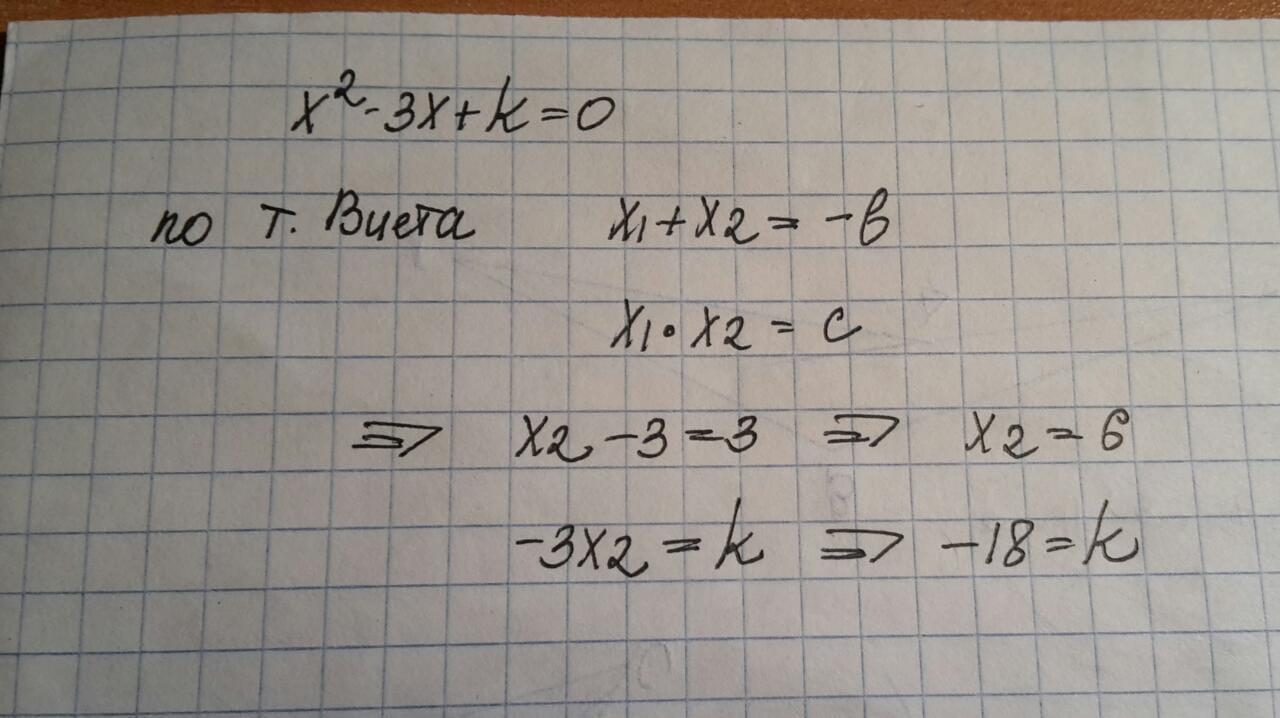 x²-3x+k=0
по т. Виета x1+x2=-в
x1•x2=c
=> x2-3=3 => x2=6
-3x2=k => -18=k